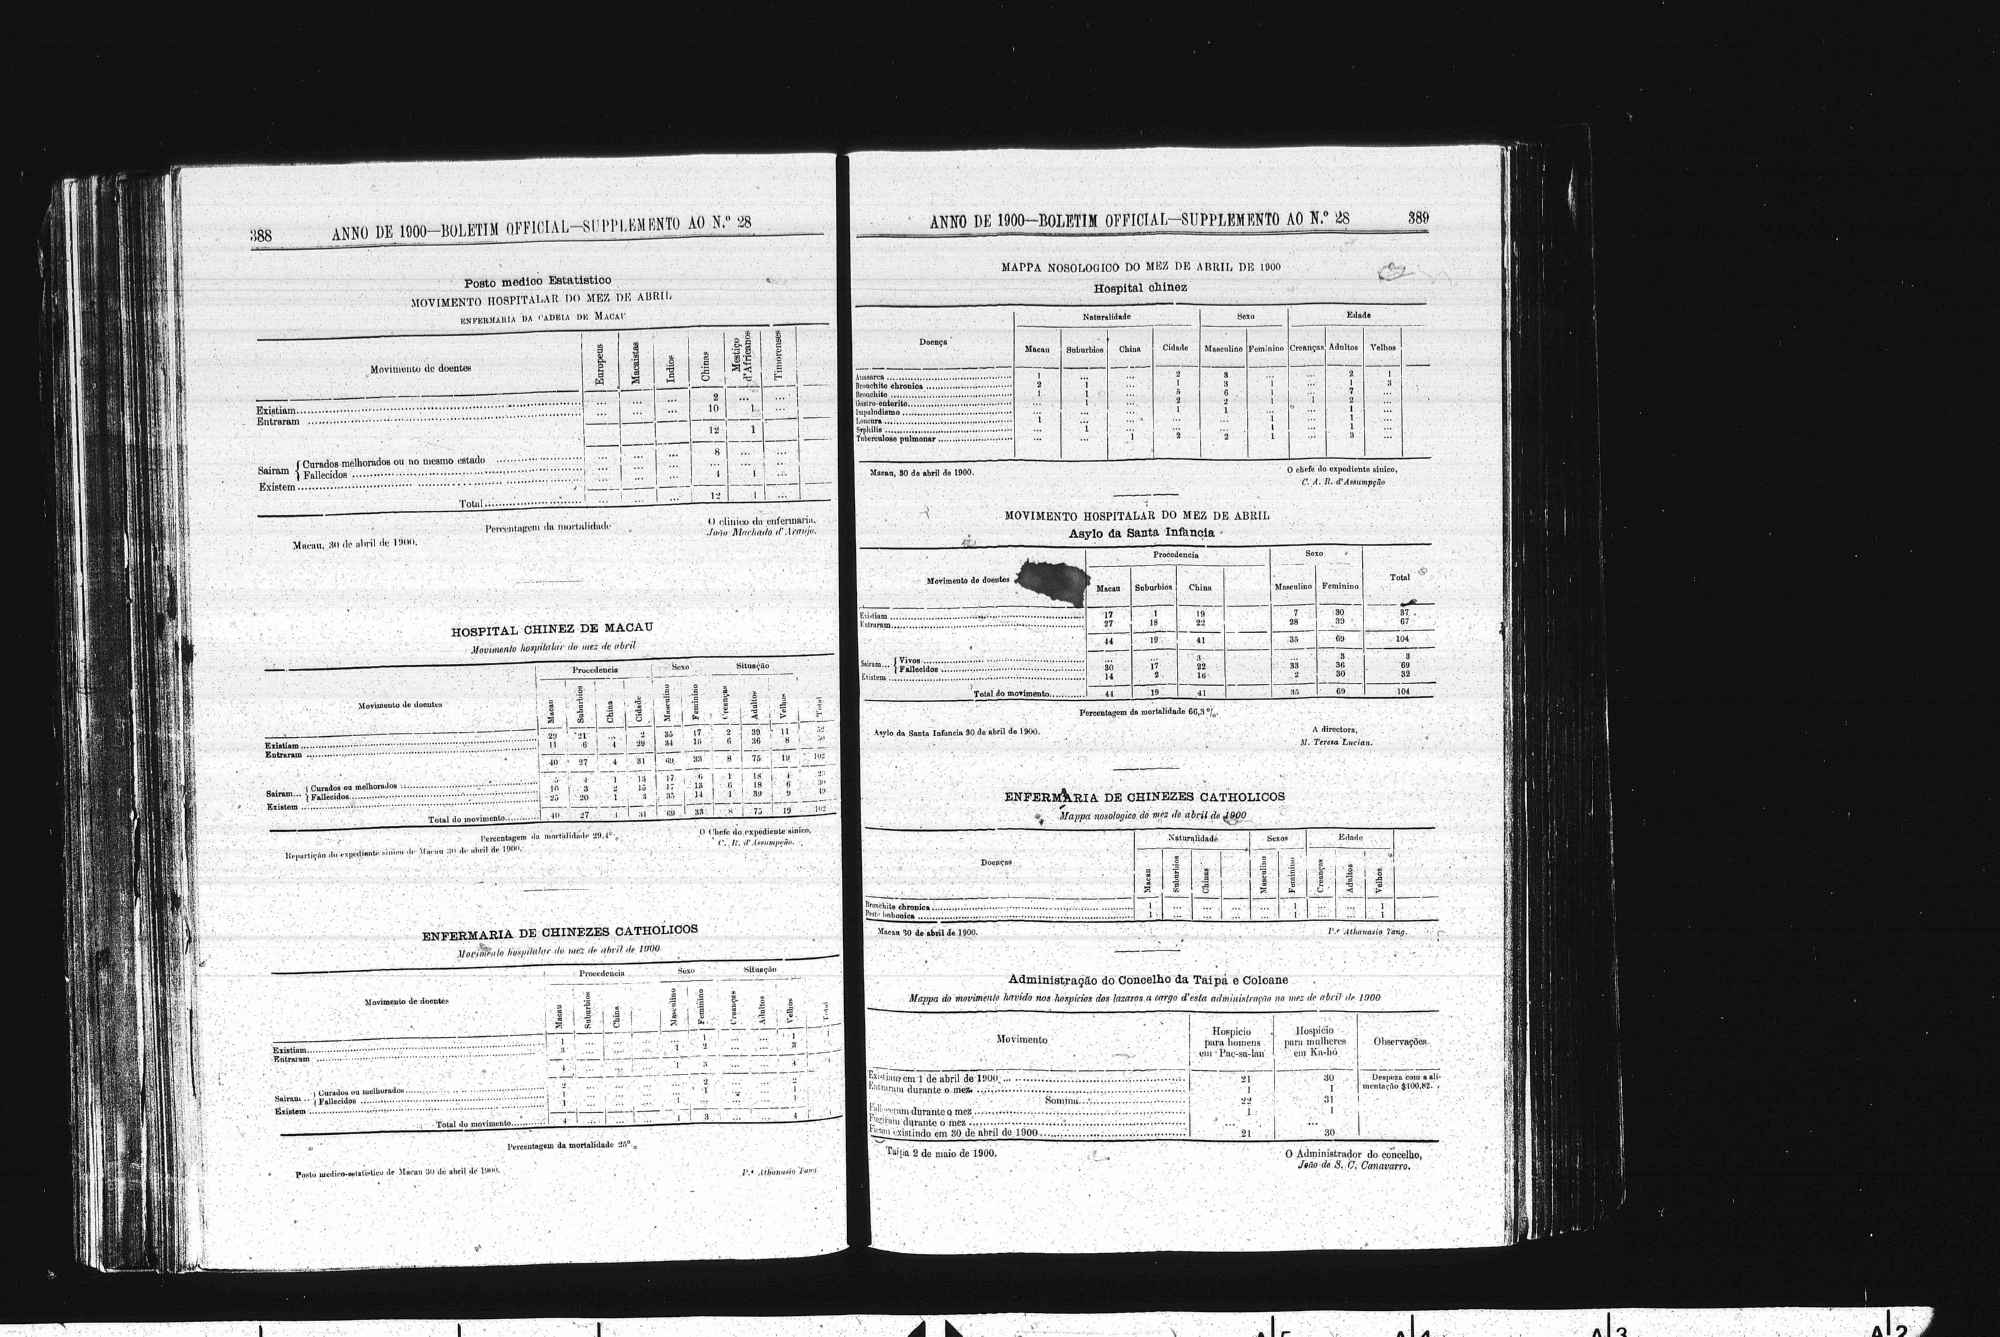 388
ANNO DE 1900—BOLETIM OFFICIAL—SUPPLEMENTO AO N.º 28
Posto medico Estatistico
MOVIMENTO HOSPITALAR DO MEZ DE ABRIL
ENFERMARIA DA CADEIA DE MACAU
Movimento de doentes Europeus Macaistas Indios Chinas Mestiço d'Africanos Timorenses
Existiam ... ... ... 2 ... ...
Entraram ... ... ... 10 1 ...
12 1
Sairam { Curados melhorados ou no mesmo estado ... ... ... 8 ... ...
Fallecidos ... ... ... ... ... ...
Existem ... ... ... 4 1 ...
Total ... ... ... 12 1 ...
Percentagem da mortalidade
O clinico da enfermaria,
João Machado d'Araujo.
Macau, 30 de abril de 1900.
HOSPITAL CHINEZ DE MACAU
Movimento hospitalar do mez de abril
Movimento de doentes Procedencia Sexo Situação
Macau Suburbios China Cidade Masculino Feminino Creanças Adultos Velhos Total
Existiam 29 21 ... 2 35 17 2 39 11 52
Entraram 11 6 4 29 34 16 6 36 8 50
40 27 4 31 69 33 8 75 19 102
Sairam { Curados ou melhorados 5 4 1 13 17 6 1 18 4 23
Fallecidos 10 3 2 15 17 13 6 18 6 30
Existem 25 20 1 3 35 14 1 39 9 49
Total do movimento 40 27 4 31 69 33 8 75 19 102
Percentagem da mortalidade 29.4%
O Chefe do expediente sinico,
C. R. d'Assumpção.
Repartição do expediente sinico de Macau 30 de abril de 1900.
ENFERMARIA DE CHINEZES CATHOLICOS
Movimento hospitalar do mez de abril de 1900
Movimento de doentes Procedencia Sexo Situação
Macau Suburbios China Masculino Feminino Creanças Adultos Velhos Total
Existiam 1 ... ... ... ... 1 ... ... 1 1
Entraram 3 ... ... ... 1 2 ... ... 3
4 1 3 ... ... 4
Sairam { Curados ou melhorados 2 ... ... ... ... 2 ... ... 2
Fallecidos 1 ... ... ... ... 1 ... ... 1
Existem 1 ... ... ... 1 ... ... ... 1
Total do movimento 4 ... ... ... 1 3 ... ... 4
Percentagem da mortalidade 25%
Posto medico-estatistico de Macau 30 de abril de 1900.
P.e Athanasio Tang
ANNO DE 1900—BOLETIM OFFICIAL—SUPPLEMENTO AO N.º 28
389
MAPPA NOSOLOGICO DO MEZ DE ABRIL DE 1900
Hospital chinez
Doença Naturalidade Sexo Edade
Macau Suburbios China Cidade Masculino Feminino Creanças Adultos Velhos
Anasarca 1 ... ... 2 3 ... ... 2 1
Bronchite chronica 2 1 ... 1 3 1 ... 1 3
Bronchite 1 1 ... 5 6 1 ... 7 ...
Gastro-enterite ... 1 ... 2 2 1 1 2 ...
Impaludismo ... ... ... 1 1 ... ... 1 ...
Loucura 1 ... ... ... ... 1 ... 1 ...
Syphilis ... 1 ... ... ... 1 ... 1 ...
Tuberculose pulmonar ... ... 1 2 2 1 ... 3 ...
Macau, 30 de abril de 1900.
O chefe do expediente sinico,
C. A. R. d'Assumpção
MOVIMENTO HOSPITALAR DO MEZ DE ABRIL
Asylo da Santa Infancia
Movimento de doentes Procedencia Sexo Total
Macau Suburbios China Masculino Feminino
Existiam 17 1 19 7 30 37
Entraram 27 18 22 28 39 67
44 19 41 35 69 104
Sairam { Vivos ... ... 3 ... 3 3
Fallecidos 30 17 22 33 36 69
Existem 14 2 16 2 30 32
Total do movimento 44 19 41 35 69 104
Percentagem da mortalidade 66,3 %.
Asylo da Santa Infancia 30 de abril de 1900.
A directora,
M. Teresa Lucian.
ENFERMARIA DE CHINEZES CATHOLICOS
Mappa nosologico do mez de abril de 1900
Doenças Naturalidade Sexos Edade
Macau Suburbios Chinas Masculino Feminino Creanças Adultos Velhos
Bronchite chronica 1 ... ... ... ... 1 ... ... 1
Peste bubonica 1 ... ... ... ... 1 ... ... 1
Macau 30 de abril de 1900.
P.e Athanasio Tang.
Administração do Concelho da Taipa e Coloane
Mappa do movimento havido nos hospicios dos lazaros a cargo d'esta administração no mez de abril de 1900
Movimento Hospicio para homens em Pac-sa-lan Hospicio para mulheres em Ka-hó Observações
Existiam em 1 de abril de 1900 21 30 Despeza com a alimentação $100,82.
Entraram durante o mez 1 1
Somma 22 31
Falleceram durante o mez 1 1
Fugiram durante o mez ... ...
Ficam existindo em 30 de abril de 1900 21 30
Taipa 2 de maio de 1900.
O Administrador do concelho,
João de S. C. Canavarro.
A5
A4
A3
A2